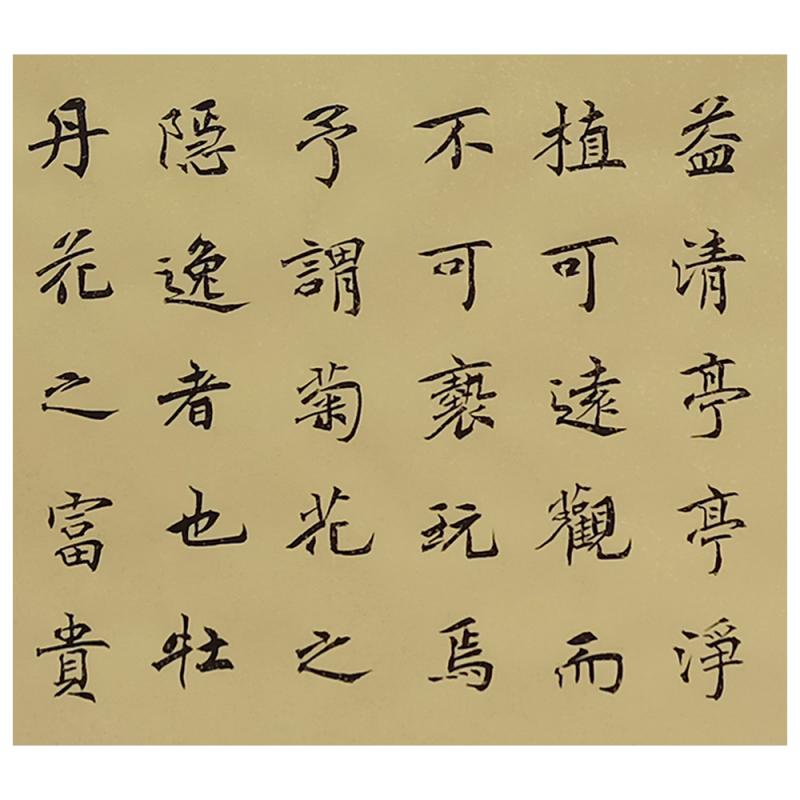 益清亭亭淨
植可遠觀而
不可褻玩焉
予謂菊花之
隱逸者也牡
丹花之富貴